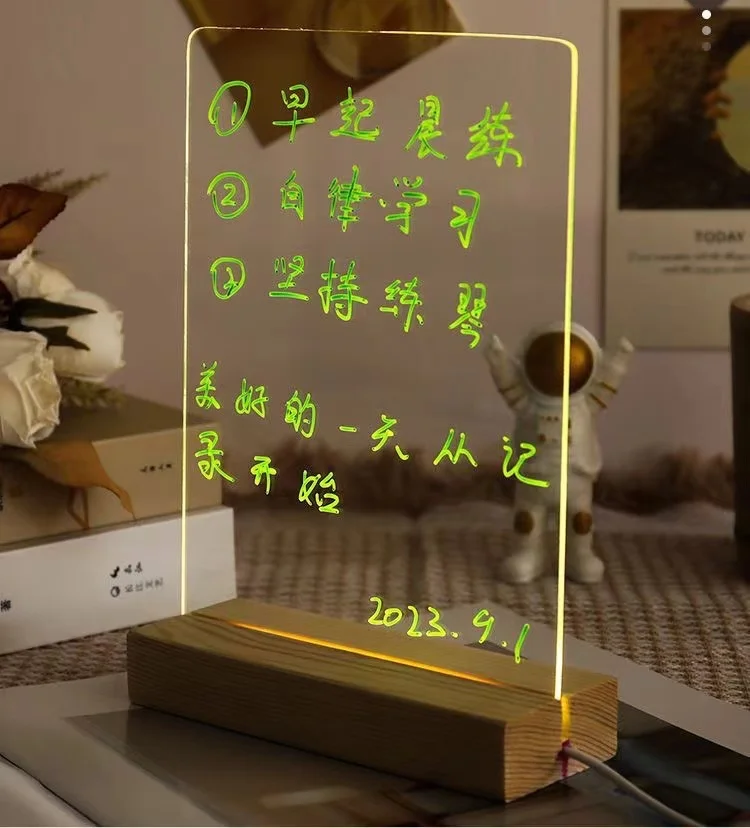 ① 早起晨练
② 自律学习
③ 坚持练琴
美好的一天从记
录开始
2023.9.1
TODAY